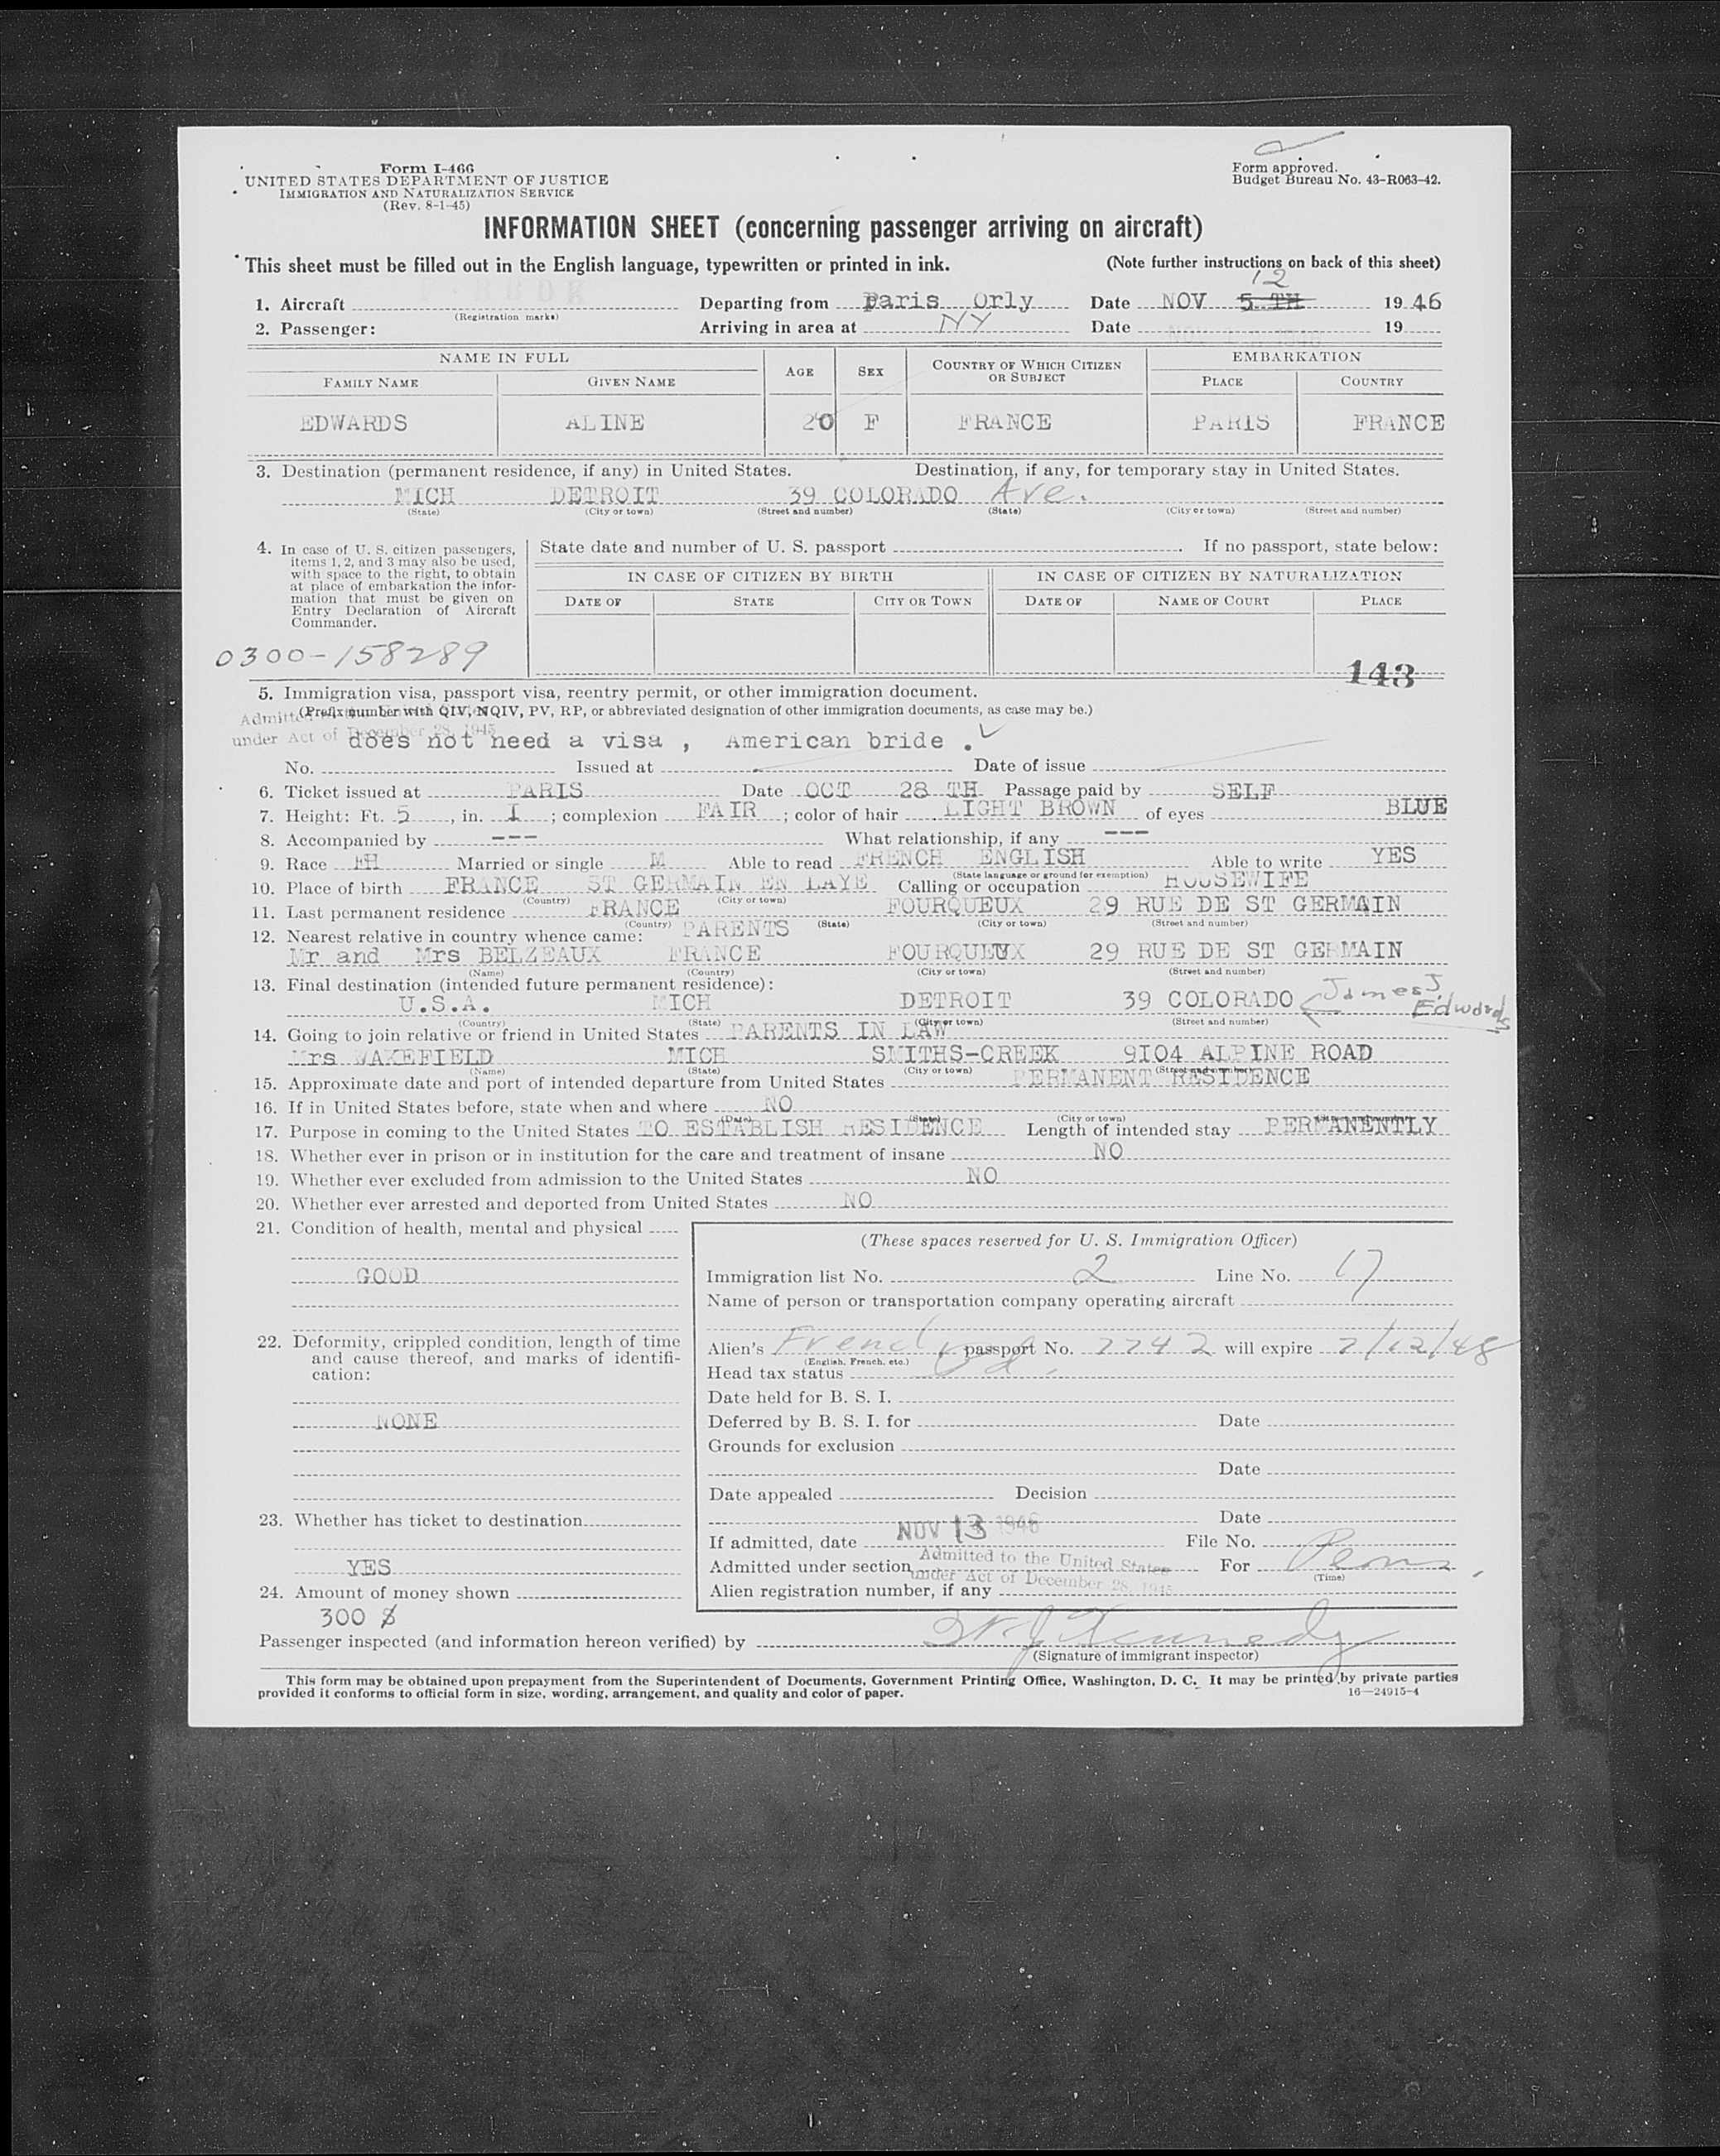 Form I-466
UNITED STATES DEPARTMENT OF JUSTICE
IMMIGRATION AND NATURALIZATION SERVICE
(Rev. 8-1-45)
Form approved.
Budget Bureau No. 43-R063-42.
INFORMATION SHEET (concerning passenger arriving on aircraft)
This sheet must be filled out in the English language, typewritten or printed in ink. (Note further instructions on back of this sheet)
12
1. Aircraft Departing from Paris Orly Date NOV 5 TH 19 46
(Registration marks)
2. Passenger: Arriving in area at NY Date 19
NAME IN FULL AGE SEX COUNTRY OF WHICH CITIZEN OR SUBJECT EMBARKATION
FAMILY NAME GIVEN NAME PLACE COUNTRY
EDWARDS ALINE 20 F FRANCE PARIS FRANCE
3. Destination (permanent residence, if any) in United States. Destination, if any, for temporary stay in United States.
MICH DETROIT 39 COLORADO Ave.
(State) (City or town) (Street and number) (State) (City or town) (Street and number)
4. In case of U. S. citizen passengers, items 1, 2, and 3 may also be used, with space to the right, to obtain at place of embarkation the information that must be given on Entry Declaration of Aircraft Commander.
State date and number of U. S. passport . If no passport, state below:
IN CASE OF CITIZEN BY BIRTH IN CASE OF CITIZEN BY NATURALIZATION
DATE OF STATE CITY OR TOWN DATE OF NAME OF COURT PLACE
0300-158289
143
5. Immigration visa, passport visa, reentry permit, or other immigration document.
(Prefix number with QIV, NQIV, PV, RP, or abbreviated designation of other immigration documents, as case may be.)
Admitted
under Act of December 28, 1945
does not need a visa , American bride .
No. Issued at Date of issue
6. Ticket issued at PARIS Date OCT 28 TH Passage paid by SELF
7. Height: Ft. 5, in. I; complexion FAIR; color of hair LIGHT BROWN of eyes BLUE
8. Accompanied by --- What relationship, if any ---
9. Race FH Married or single M Able to read FRENCH ENGLISH Able to write YES
(State language or ground for exemption)
10. Place of birth FRANCE ST GERMAIN EN LAYE Calling or occupation HOUSEWIFE
(Country) (City or town)
11. Last permanent residence FRANCE FOURQUEUX 29 RUE DE ST GERMAIN
(Country) (State) (City or town) (Street and number)
12. Nearest relative in country whence came: PARENTS
Mr and Mrs BELZEAUX FRANCE FOURQUEUX 29 RUE DE ST GERMAIN
(Name) (Country) (City or town) (Street and number)
13. Final destination (intended future permanent residence):
U.S.A. MICH DETROIT 39 COLORADO James J. Edwards
(Country) (State) (City or town) (Street and number)
14. Going to join relative or friend in United States PARENTS IN LAW
Mrs WAKEFIELD MICH SMITHS-CREEK 9I04 ALPINE ROAD
(Name) (State) (City or town) (Street and number)
15. Approximate date and port of intended departure from United States PERMANENT RESIDENCE
16. If in United States before, state when and where NO
(Date) (State) (City or town) (Street and number)
17. Purpose in coming to the United States TO ESTABLISH RESIDENCE Length of intended stay PERMANENTLY
18. Whether ever in prison or in institution for the care and treatment of insane NO
19. Whether ever excluded from admission to the United States NO
20. Whether ever arrested and deported from United States NO
21. Condition of health, mental and physical
GOOD
22. Deformity, crippled condition, length of time and cause thereof, and marks of identification:
NONE
23. Whether has ticket to destination
YES
24. Amount of money shown
300 $
(These spaces reserved for U. S. Immigration Officer)
Immigration list No. 2 Line No. 17
Name of person or transportation company operating aircraft
Alien's French passport No. 2242 will expire 2/12/48
(English, French, etc.)
Head tax status
Date held for B. S. I.
Deferred by B. S. I. for Date
Grounds for exclusion
Date
Date appealed Decision
Date
If admitted, date NOV 13 1946 File No.
Admitted under section Admitted to the United States For Perm
under Act of December 28, 1945
(Time)
Alien registration number, if any
Passenger inspected (and information hereon verified) by W. J. Kennedy
(Signature of immigrant inspector)
This form may be obtained upon prepayment from the Superintendent of Documents, Government Printing Office, Washington, D. C. It may be printed by private parties
provided it conforms to official form in size, wording, arrangement, and quality and color of paper. 16—24915-4